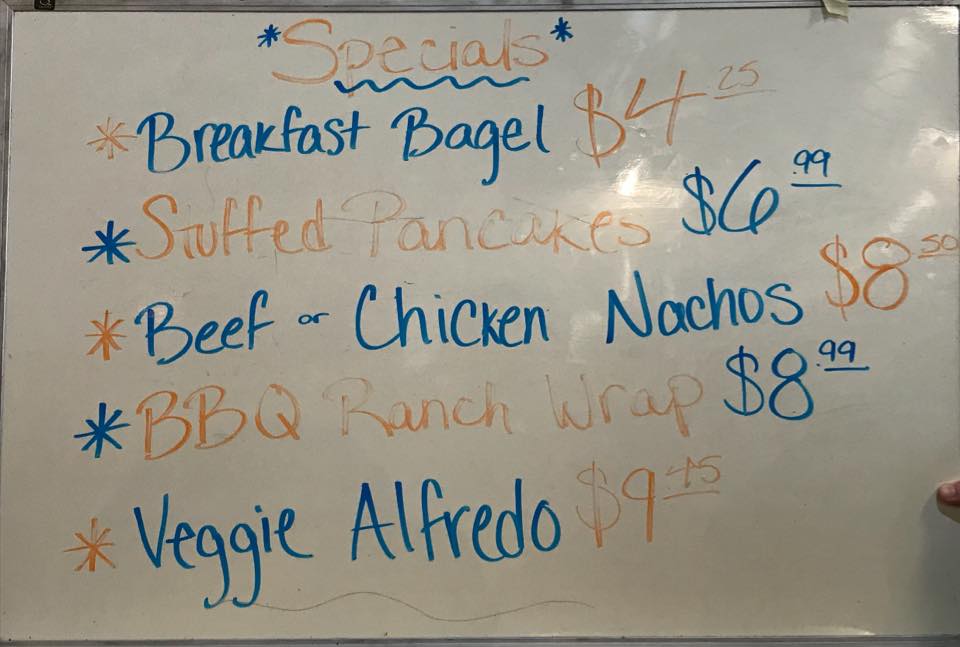 *Specials*
* Breakfast Bagel $4 25
* Stuffed Pancakes $6 .99
* Beef or Chicken Nachos $8 50
* BBQ Ranch Wrap $8 .99
* Veggie Alfredo $9 45